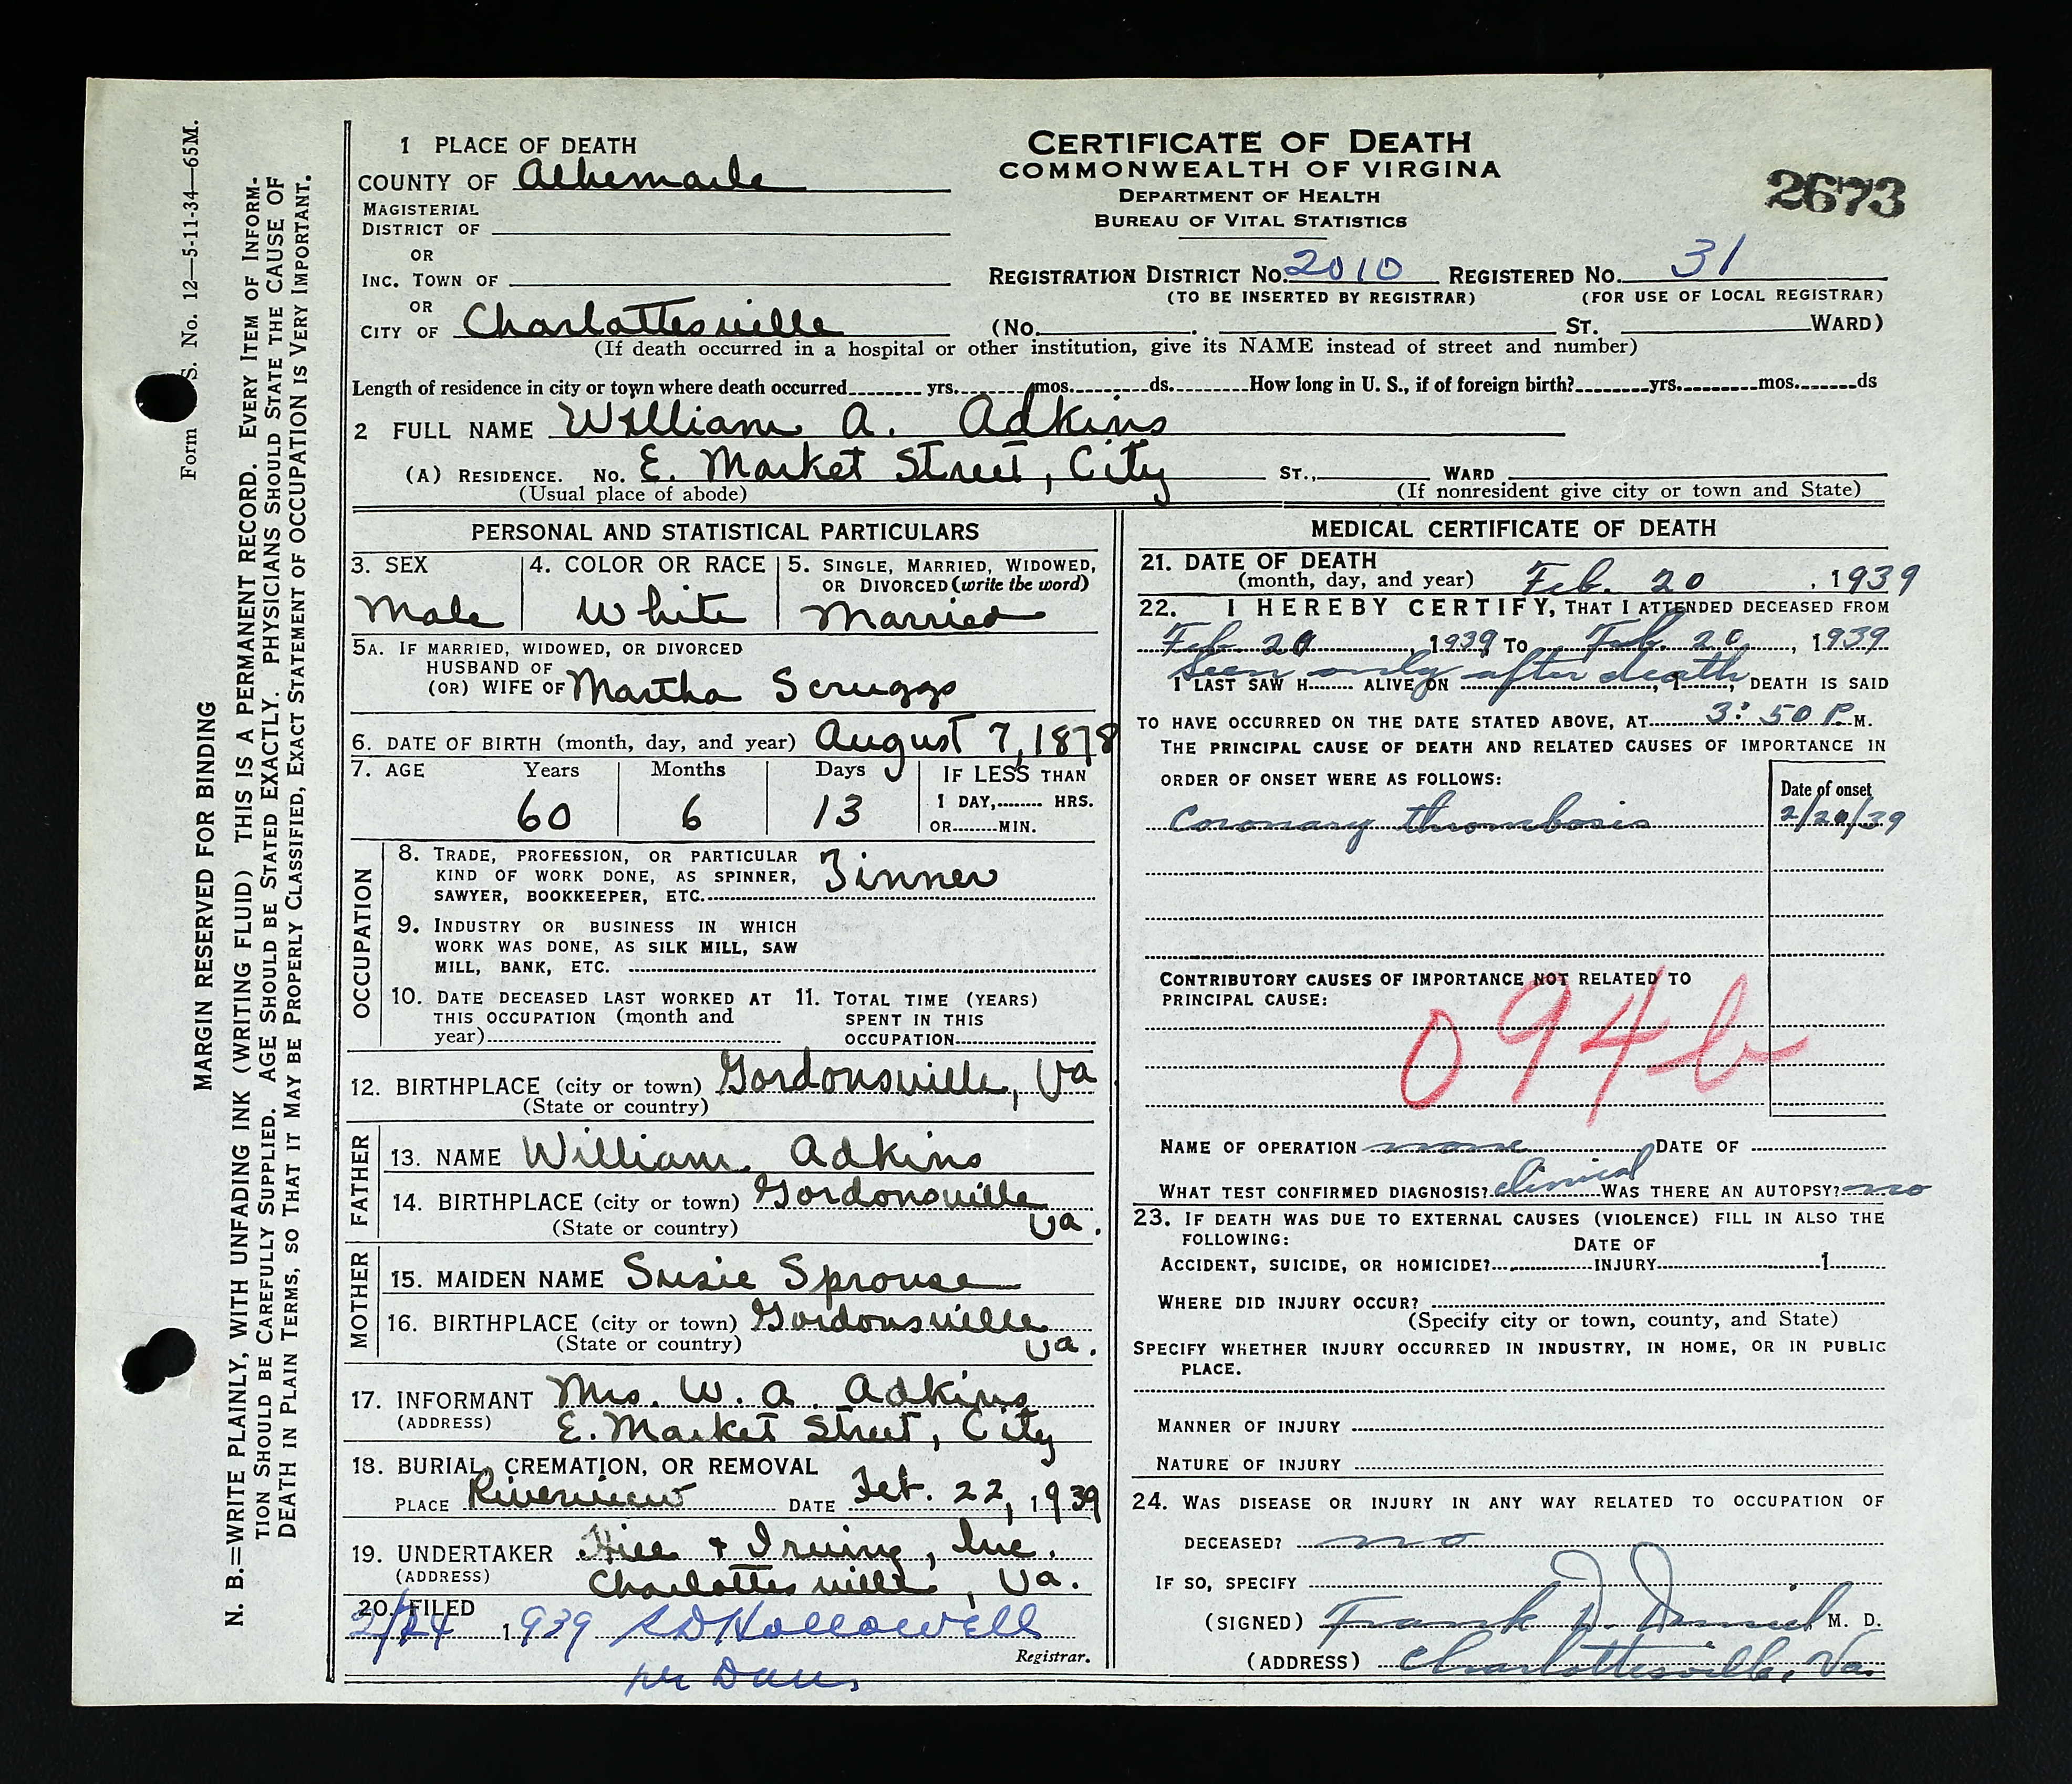 Form S. No. 12—5-11-34—65M.
MARGIN RESERVED FOR BINDING
N. B.=WRITE PLAINLY, WITH UNFADING INK (WRITING FLUID) THIS IS A PERMANENT RECORD. EVERY ITEM OF INFORM-
TION SHOULD BE CAREFULLY SUPPLIED. AGE SHOULD BE STATED EXACTLY. PHYSICIANS SHOULD STATE THE CAUSE OF
DEATH IN PLAIN TERMS, SO THAT IT MAY BE PROPERLY CLASSIFIED, EXACT STATEMENT OF OCCUPATION IS VERY IMPORTANT.
CERTIFICATE OF DEATH
COMMONWEALTH OF VIRGINA
DEPARTMENT OF HEALTH
BUREAU OF VITAL STATISTICS
2673
1 PLACE OF DEATH
COUNTY OF Albemarle
MAGISTERIAL
DISTRICT OF
OR
INC. TOWN OF
OR
CITY OF Charlottesville
REGISTRATION DISTRICT NO. 2010 REGISTERED NO. 31
(TO BE INSERTED BY REGISTRAR) (FOR USE OF LOCAL REGISTRAR)
(NO. ST. WARD)
(If death occurred in a hospital or other institution, give its NAME instead of street and number)
Length of residence in city or town where death occurred yrs. mos. ds. How long in U. S., if of foreign birth? yrs. mos. ds
2 FULL NAME William A. Adkins
(A) RESIDENCE. NO. E. Market Street, City ST., WARD
(Usual place of abode) (If nonresident give city or town and State)
PERSONAL AND STATISTICAL PARTICULARS
3. SEX
Male
4. COLOR OR RACE
White
5. SINGLE, MARRIED, WIDOWED,
OR DIVORCED (write the word)
Married
5A. IF MARRIED, WIDOWED, OR DIVORCED
HUSBAND OF
(OR) WIFE OF Martha Scruggs
6. DATE OF BIRTH (month, day, and year) August 7, 1878
7. AGE Years Months Days IF LESS THAN
1 DAY, HRS.
OR MIN.
60 6 13
OCCUPATION
8. TRADE, PROFESSION, OR PARTICULAR
KIND OF WORK DONE, AS SPINNER,
SAWYER, BOOKKEEPER, ETC. Tinner
9. INDUSTRY OR BUSINESS IN WHICH
WORK WAS DONE, AS SILK MILL, SAW
MILL, BANK, ETC.
10. DATE DECEASED LAST WORKED AT
THIS OCCUPATION (month and
year)
11. TOTAL TIME (YEARS)
SPENT IN THIS
OCCUPATION
12. BIRTHPLACE (city or town) Gordonsville, Va
(State or country)
FATHER
13. NAME William Adkins
14. BIRTHPLACE (city or town) Gordonsville
(State or country) Va.
MOTHER
15. MAIDEN NAME Susie Sprouse
16. BIRTHPLACE (city or town) Gordonsville
(State or country) Va.
17. INFORMANT Mrs. W. A. Adkins
(ADDRESS) E. Market Street, City
18. BURIAL, CREMATION, OR REMOVAL
PLACE Riverview DATE Feb. 22, 1939
19. UNDERTAKER Hill & Irving, Inc.
(ADDRESS) Charlottesville, Va.
20. FILED
2/24 1939 L D Hollowell
Registrar.
per
MEDICAL CERTIFICATE OF DEATH
21. DATE OF DEATH
(month, day, and year) Feb. 20, 1939
22. I HEREBY CERTIFY, THAT I ATTENDED DECEASED FROM
Feb. 20, 1939 TO Feb. 20, 1939
Seen only after death
I LAST SAW H ALIVE ON , 1 , DEATH IS SAID
TO HAVE OCCURRED ON THE DATE STATED ABOVE, AT 3:50 P. M.
THE PRINCIPAL CAUSE OF DEATH AND RELATED CAUSES OF IMPORTANCE IN
ORDER OF ONSET WERE AS FOLLOWS:
Date of onset
Coronary thrombosis 2/20/39
CONTRIBUTORY CAUSES OF IMPORTANCE NOT RELATED TO
PRINCIPAL CAUSE:
094b
NAME OF OPERATION none DATE OF
WHAT TEST CONFIRMED DIAGNOSIS? Clinical WAS THERE AN AUTOPSY? no
23. IF DEATH WAS DUE TO EXTERNAL CAUSES (VIOLENCE) FILL IN ALSO THE
FOLLOWING:
DATE OF
ACCIDENT, SUICIDE, OR HOMICIDE? INJURY 1
WHERE DID INJURY OCCUR?
(Specify city or town, county, and State)
SPECIFY WHETHER INJURY OCCURRED IN INDUSTRY, IN HOME, OR IN PUBLIC
PLACE.
MANNER OF INJURY
NATURE OF INJURY
24. WAS DISEASE OR INJURY IN ANY WAY RELATED TO OCCUPATION OF
DECEASED? no
IF SO, SPECIFY
(SIGNED) Frank D. Daniel M. D.
(ADDRESS) Charlottesville, Va.